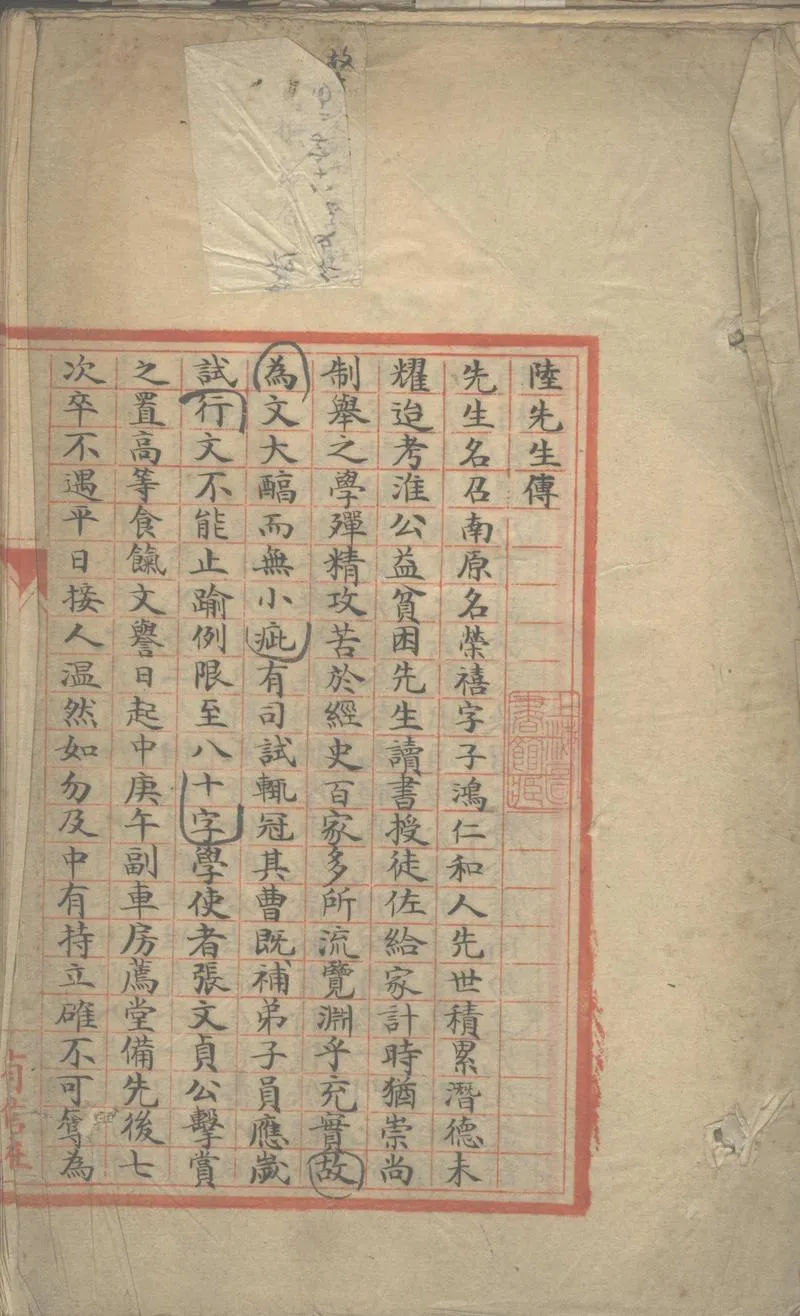 陸先生傳
先生名召南原名榮禧字子鴻仁和人先世積累潛德未
耀迨考淮公益貧困先生讀書授徒佐給家計時猶崇尚
制舉之學殫精攻苦於經史百家多所流覽淵乎充實故
為文大醕而無小疵有司試輒冠其曹既補弟子員應歲
試行文不能止踰例限至八十字學使者張文貞公擊賞
之置高等食餼文譽日起中庚午副車房薦堂備先後七
次卒不遇平日接人溫然如勿及中有持立確不可奪為
上海圖書館藏